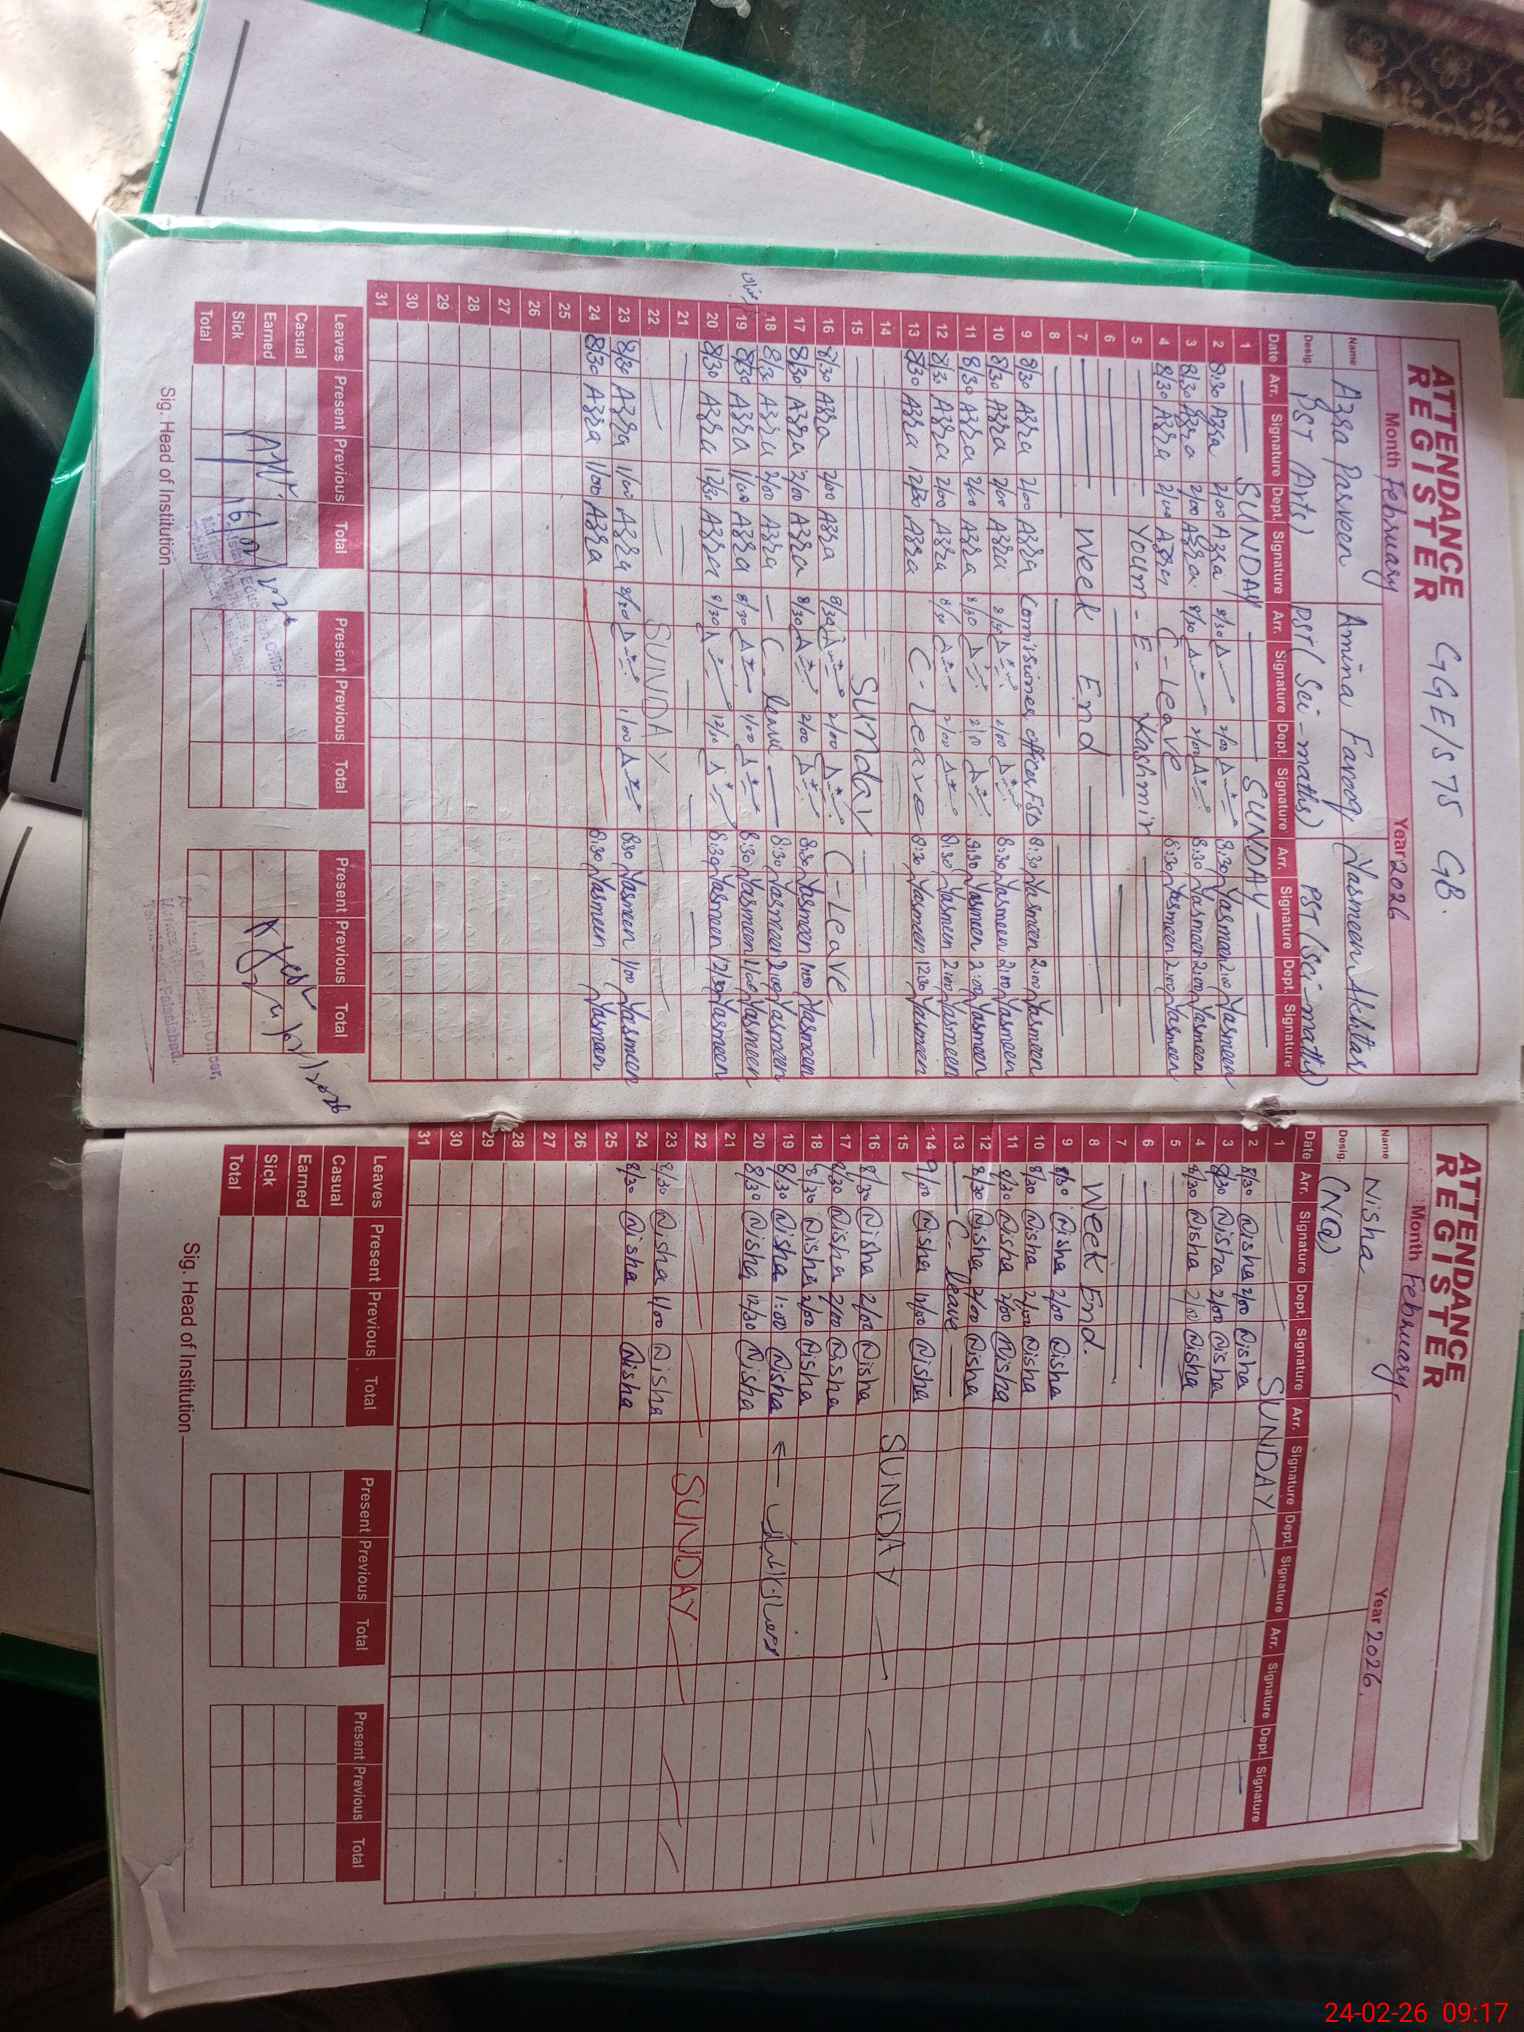 ATTENDANCE REGISTER
GGE/S 75 GB.
Month February Year 2026
Name Azra Parveen Amina Farooq Yasmeen Akhtar
Desig. PST (Arts) PST (Sci-maths) PST (Sci-maths)
Date Arr. Signature Dept. Signature Arr. Signature Dept. Signature Arr. Signature Dept. Signature
1 SUNDAY SUNDAY
2 8:30 Azra 2/00 Azra 8/30 2/00 8:30 Yasmeen 2:00 Yasmeen
3 8/30 Azra 2/00 Azra 8/30 2/00 8:30 Yasmeen 2:00 Yasmeen
4 8/30 Azra 2/00 Azra C-Leave 8:30 Yasmeen 2:00 Yasmeen
5 Youm-E-Kashmir
6
7 Week End
8
9 8/30 Azra 2/00 Azra 8:30 Yasmeen 2:00 Yasmeen
10 8/30 Azra 2/00 Azra 8/30 2/00 8:30 Yasmeen 2:00 Yasmeen
11 8/30 Azra 2/00 Azra 8/30 2/00 8:30 Yasmeen 2:00 Yasmeen
12 8/30 Azra 2/00 Azra 8/30 2/00 8:30 Yasmeen 2:00 Yasmeen
13 8/30 Azra 12/30 Azra C-leave 8:30 Yasmeen 12:30 Yasmeen
14
15 SUNDAY
16 8/30 Azra 2/00 Azra 8/30 2/00 C-Leave
17 8/30 Azra 2/00 Azra 8/30 2/00 8:30 Yasmeen Yasmeen
18 8/30 Azra 2/00 Azra C-leave 8:30 Yasmeen 2:00 Yasmeen
19 8/30 Azra 1/00 Azra 8/30 1/00 8:30 Yasmeen 1:00 Yasmeen
20 8/30 Azra 12/30 Azra 8/30 8:30 Yasmeen 12/30 Yasmeen
21
22 SUNDAY
23 8/30 Azra 1/00 Azra 8/30 1/00 8:30 Yasmeen 1/00 Yasmeen
24 8/30 Azra 1/00 Azra 8:30 Yasmeen Yasmeen
25
26
27
28
29
30
31
Leaves Present Previous Total Present Previous Total Present Previous Total
Casual
Earned
Sick
Total
Sig. Head of Institution
ATTENDANCE REGISTER
Month February Year 2026
Name Nisha
Desig. (N@)
Date Arr. Signature Dept. Signature Arr. Signature Dept. Signature Arr. Signature Dept. Signature
1 SUNDAY
2 8/30 Nisha 2/00 Nisha
3 8/30 Nisha 2/00 Nisha
4 8/30 Nisha 2/00 Nisha
5
6
7
8 Week End.
9 8/30 Nisha 2/00 Nisha
10 8/30 Nisha 2/00 Nisha
11 8/30 Nisha 2/00 Nisha
12 8/30 Nisha 2/00 Nisha
13 C-leave
14 9/00 Nisha Nisha
15 SUNDAY
16 8/30 Nisha 2/00 Nisha
17 8/30 Nisha 2/00 Nisha
18 8/30 Nisha 2/00 Nisha
19 8/30 Nisha 1:00 Nisha
20 8/30 Nisha 12/30 Nisha
21
22 SUNDAY
23 8/30 Nisha 1/00 Nisha
24 8/30 Nisha Nisha
25
26
27
28
29
30
31
Leaves Present Previous Total Present Previous Total Present Previous Total
Casual
Earned
Sick
Total
Sig. Head of Institution
24-02-26 09:17